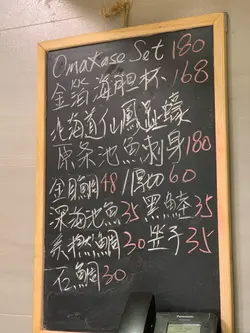 Omakase Set 180
金箔海胆杯 168
北海道仙鳳趾蠔
原条池魚刺身 180
金目鯛 48 /厚切 60
深海池魚 35 黑鯥 35
魚標鯛 30 笠子 35
石鯛 30
Panasonic